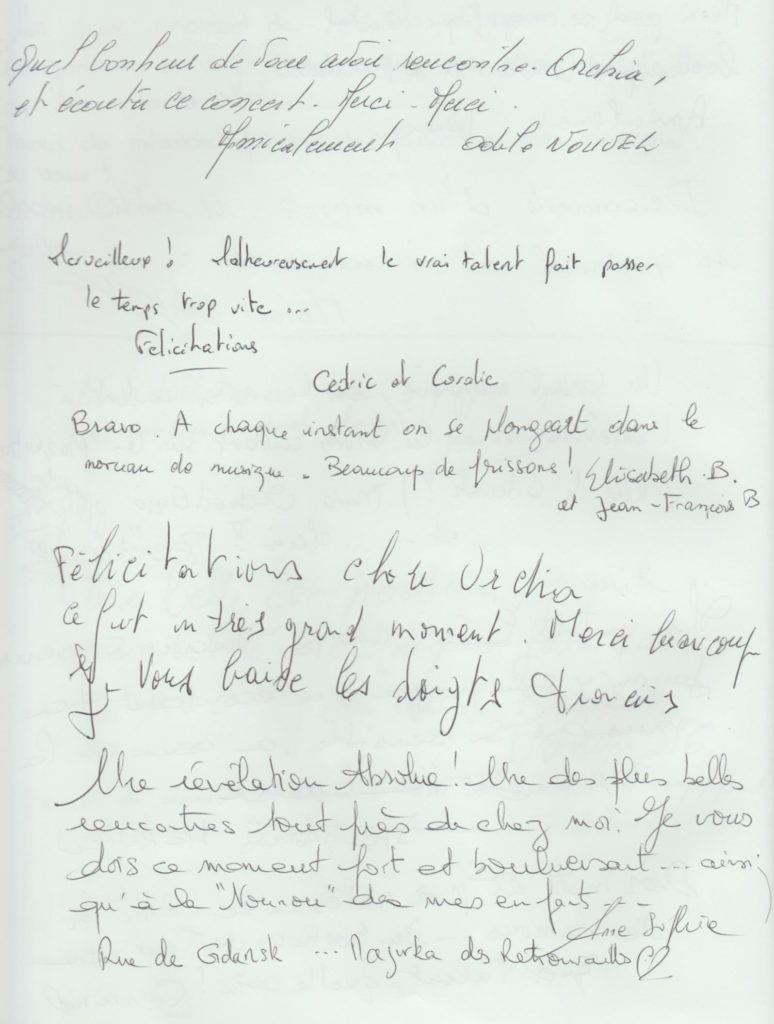 Quel bonheur de vous avoir rencontré. Orchia,
et écouté ce concert. Merci - Merci.
Amicalement Odile NOUVEL
Merveilleux ! Malheureusement le vrai talent fait passer
le temps trop vite ...
Félicitations
Cédric et Coralie
Bravo. A chaque instant on se plongeait dans le
morceau de musique. Beaucoup de frissons ! Elisabeth .B.
et Jean-François B
Félicitations chère Orchia
ce fut un très grand moment. Merci beaucoup
Je vous baise les doigts
Une révélation Absolue ! Une des plus belles
rencontres tout près de chez moi! Je vous
dois ce moment fort et bouleversant ... ainsi
qu'à la "Nounou" des mes enfants - -
Anne Sophie
Rue de Gdansk ... Mazurka des Retrouvailles